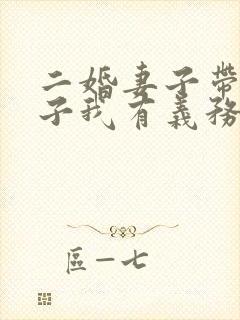 二婚妻子帶
子我有義務
區一七